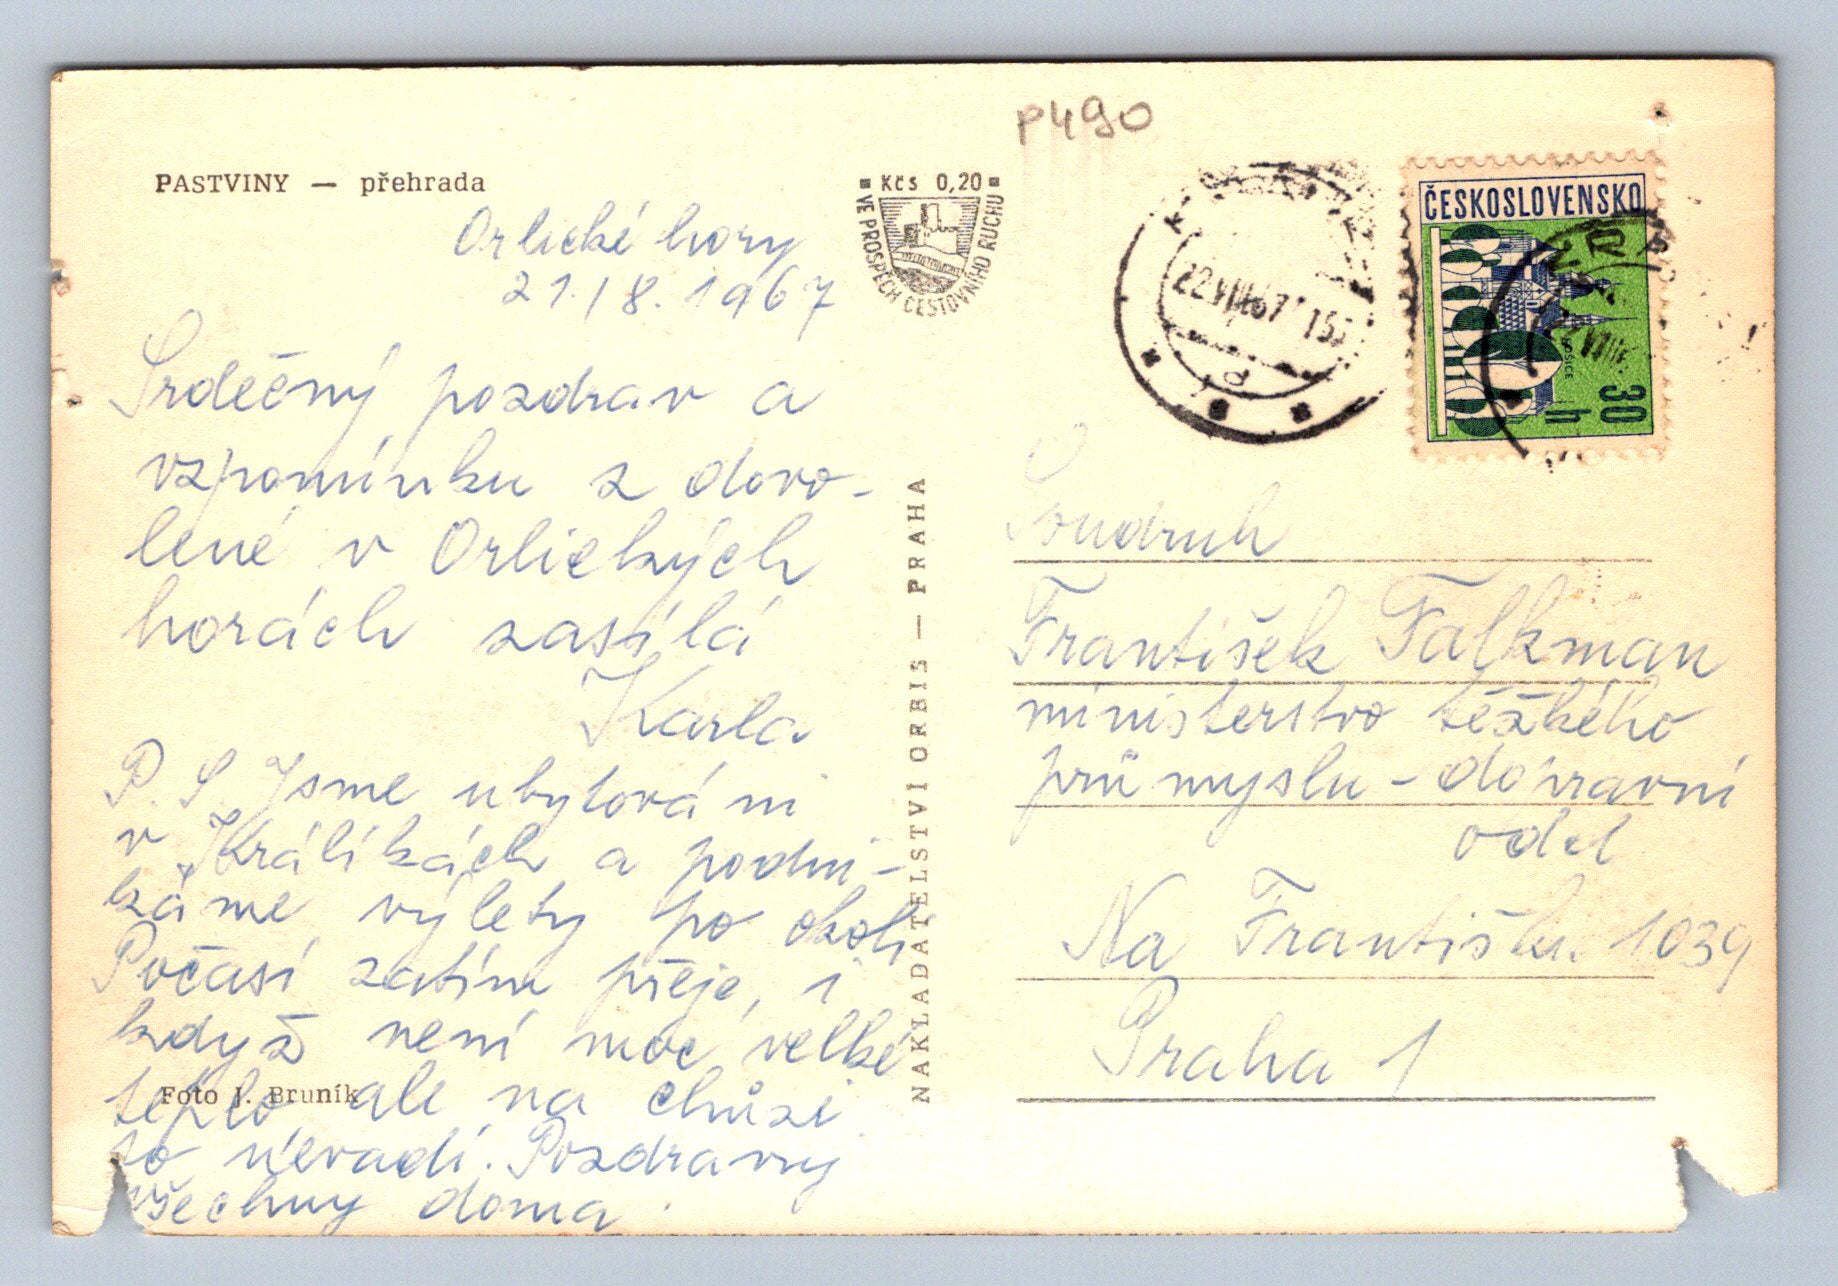 P490
PASTVINY — přehrada
Kčs 0,20
VE PROSPĚCH CESTOVNÍHO RUCHU
ČESKOSLOVENSKO
30 h
22.VIII.67 15
Orlické hory
21./8. 1967
Srdečný pozdrav a
vzpomínku z dovo-
lené v Orlických
horách zasílá
Karla
P. S. Jsme ubytováni
v Králíkách a podni-
káme výlety po okolí
Počasí zatím přeje, i
když není moc velké
teplo ale na chůzi
to nevadí. Pozdravuj
všechny doma.
Foto J. Bruník
NAKLADATELSTVÍ ORBIS — PRAHA
Soudruh
František Falkman
ministerstvo těžkého
průmyslu - dopravní
odd
Na Františku 1039
Praha 1